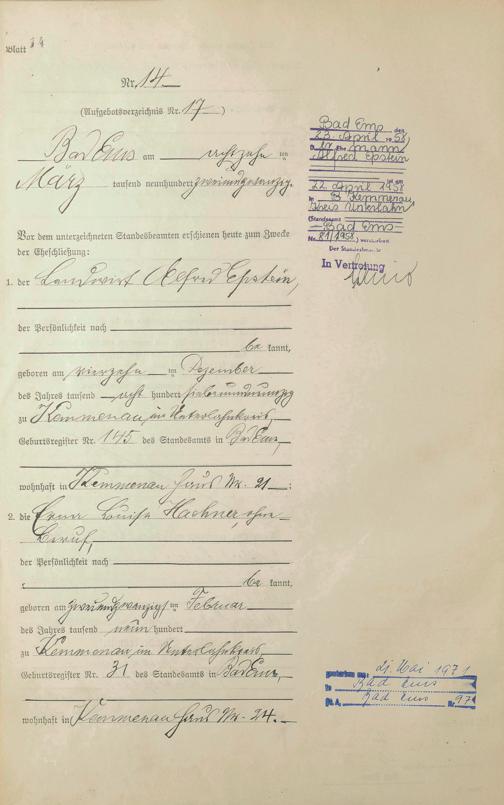 Blatt 14
Nr. 14
(Aufgebotsverzeichnis Nr. 17)
Bad Ems am achtzehn ten
März tausend neunhundert zweiundzwanzig.
Vor dem unterzeichneten Standesbeamten erschienen heute zum Zwecke
der Eheschließung:
1. der Landwirt Alfred Epstein,
der Persönlichkeit nach
be kannt,
geboren am vierzehn ten Dezember
des Jahres tausend acht hundert siebenundneunzig
zu Kemmenau, im Unterlahnkreis,
Geburtsregister Nr. 145 des Standesamts in Bad Ems,
wohnhaft in Kemmenau Haus Nr. 21;
2. die Erna Luise Hachner, ohne
Beruf,
der Persönlichkeit nach
be kannt,
geboren am zweiundzwanzigsten Februar
des Jahres tausend neun hundert
zu Kemmenau, im Unterlahnkreis,
Geburtsregister Nr. 31 des Standesamts in Bad Ems,
wohnhaft in Kemmenau Haus Nr. 24.
Bad Ems, den
23. April 1958
Der Ehemann
Alfred Epstein
ist am
22. April 1958
in Kemmenau,
Kreis Unterlahn
(Standesamt
Bad Ems
Nr. 81/1958) verstorben
Der Standesbeamte
In Vertretung
gestorben am: 21. Mai 1971
in Bad Ems
St. A. Bad Ems Nr. 97